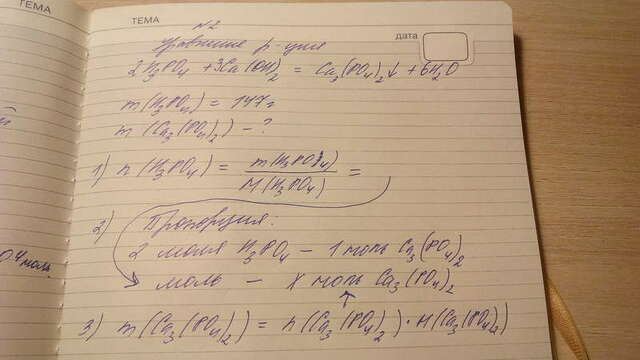 ТЕМА
ТЕМА
дата
№2
Уравнение р-ция
2H₃PO₄ + 3Ca(OH)₂ = Ca₃(PO₄)₂↓ + 6H₂O
m(H₃PO₄) = 147г
m(Ca₃(PO₄)₂) - ?
1) n(H₃PO₄) = m(H₃PO₄) / M(H₃PO₄) =
2) Пропорция:
2 моля H₃PO₄ - 1 моль Ca₃(PO₄)₂
0.4 моль
моль - x моль Ca₃(PO₄)₂
3) m(Ca₃(PO₄)₂) = n(Ca₃(PO₄)₂) · M(Ca₃(PO₄)₂)